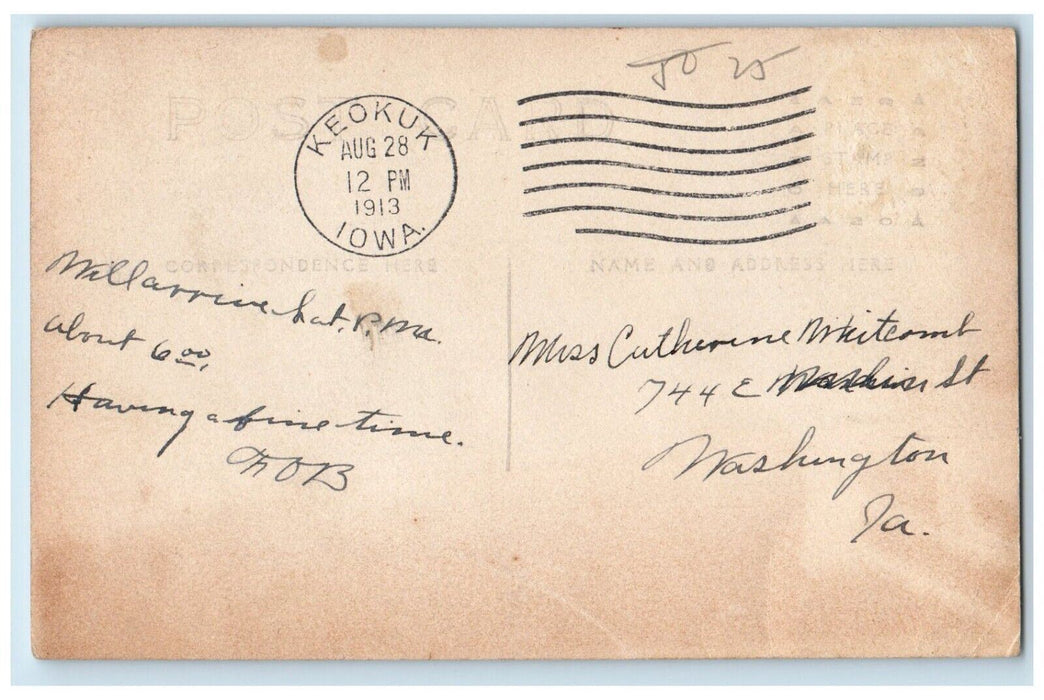 50 25
POST CARD
KEOKUK
AUG 28
12 PM
1913
IOWA.
PLACE
STAMP
HERE
CORRESPONDENCE HERE
NAME AND ADDRESS HERE
Will arrive Sat. P.M.
about 6 00,
Having a fine time.
Miss Catherine Whitcomb
744 E St
Washington
Ia.